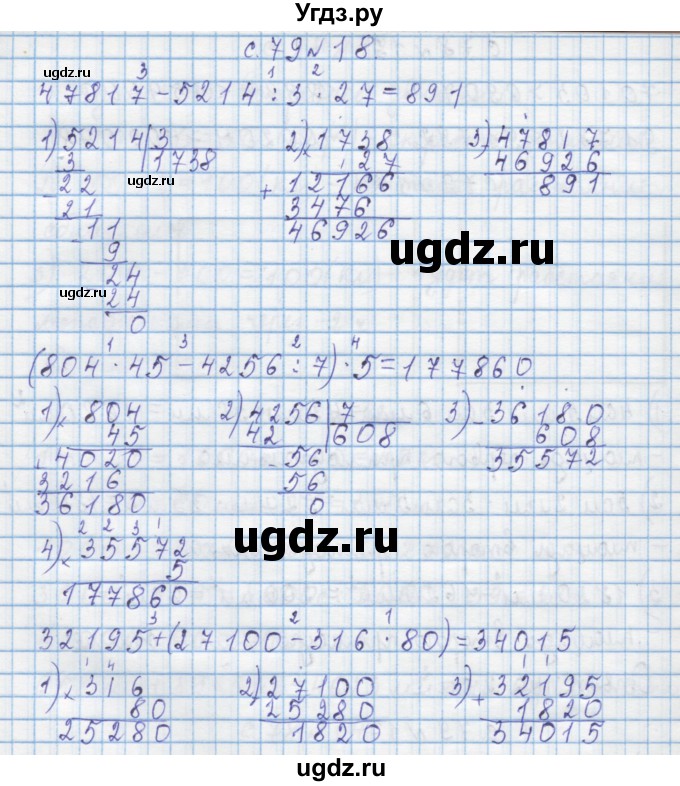 Угдз.ру
с. 79 № 18.
3 1 2
47817 - 5214 : 3 · 27 = 891
1) 5214 3 2) × 1738 3) - 47817
- 3 1738 27 46926
- 22 + 12166 891
21 3476
- 11 46926
9
24
24
0
ugdz.ru
ugdz.ru
ugdz.ru
1 3 2 4
(804 · 45 - 4256 : 7) · 5 = 177860
1) × 804 2) 4256 7 3) - 36180
45 42 608 608
4020 - 56 35572
3216 56
36180 0
ugdz.ru
2 2 3 1
4) × 35572
5
177860
ugdz.ru
3 2 1
32195 + (27100 - 316 · 80) = 34015
1 4
1) × 316 2) - 27100 3) + 32195
80 25280 1820
25280 1820 34015
ugdz.ru